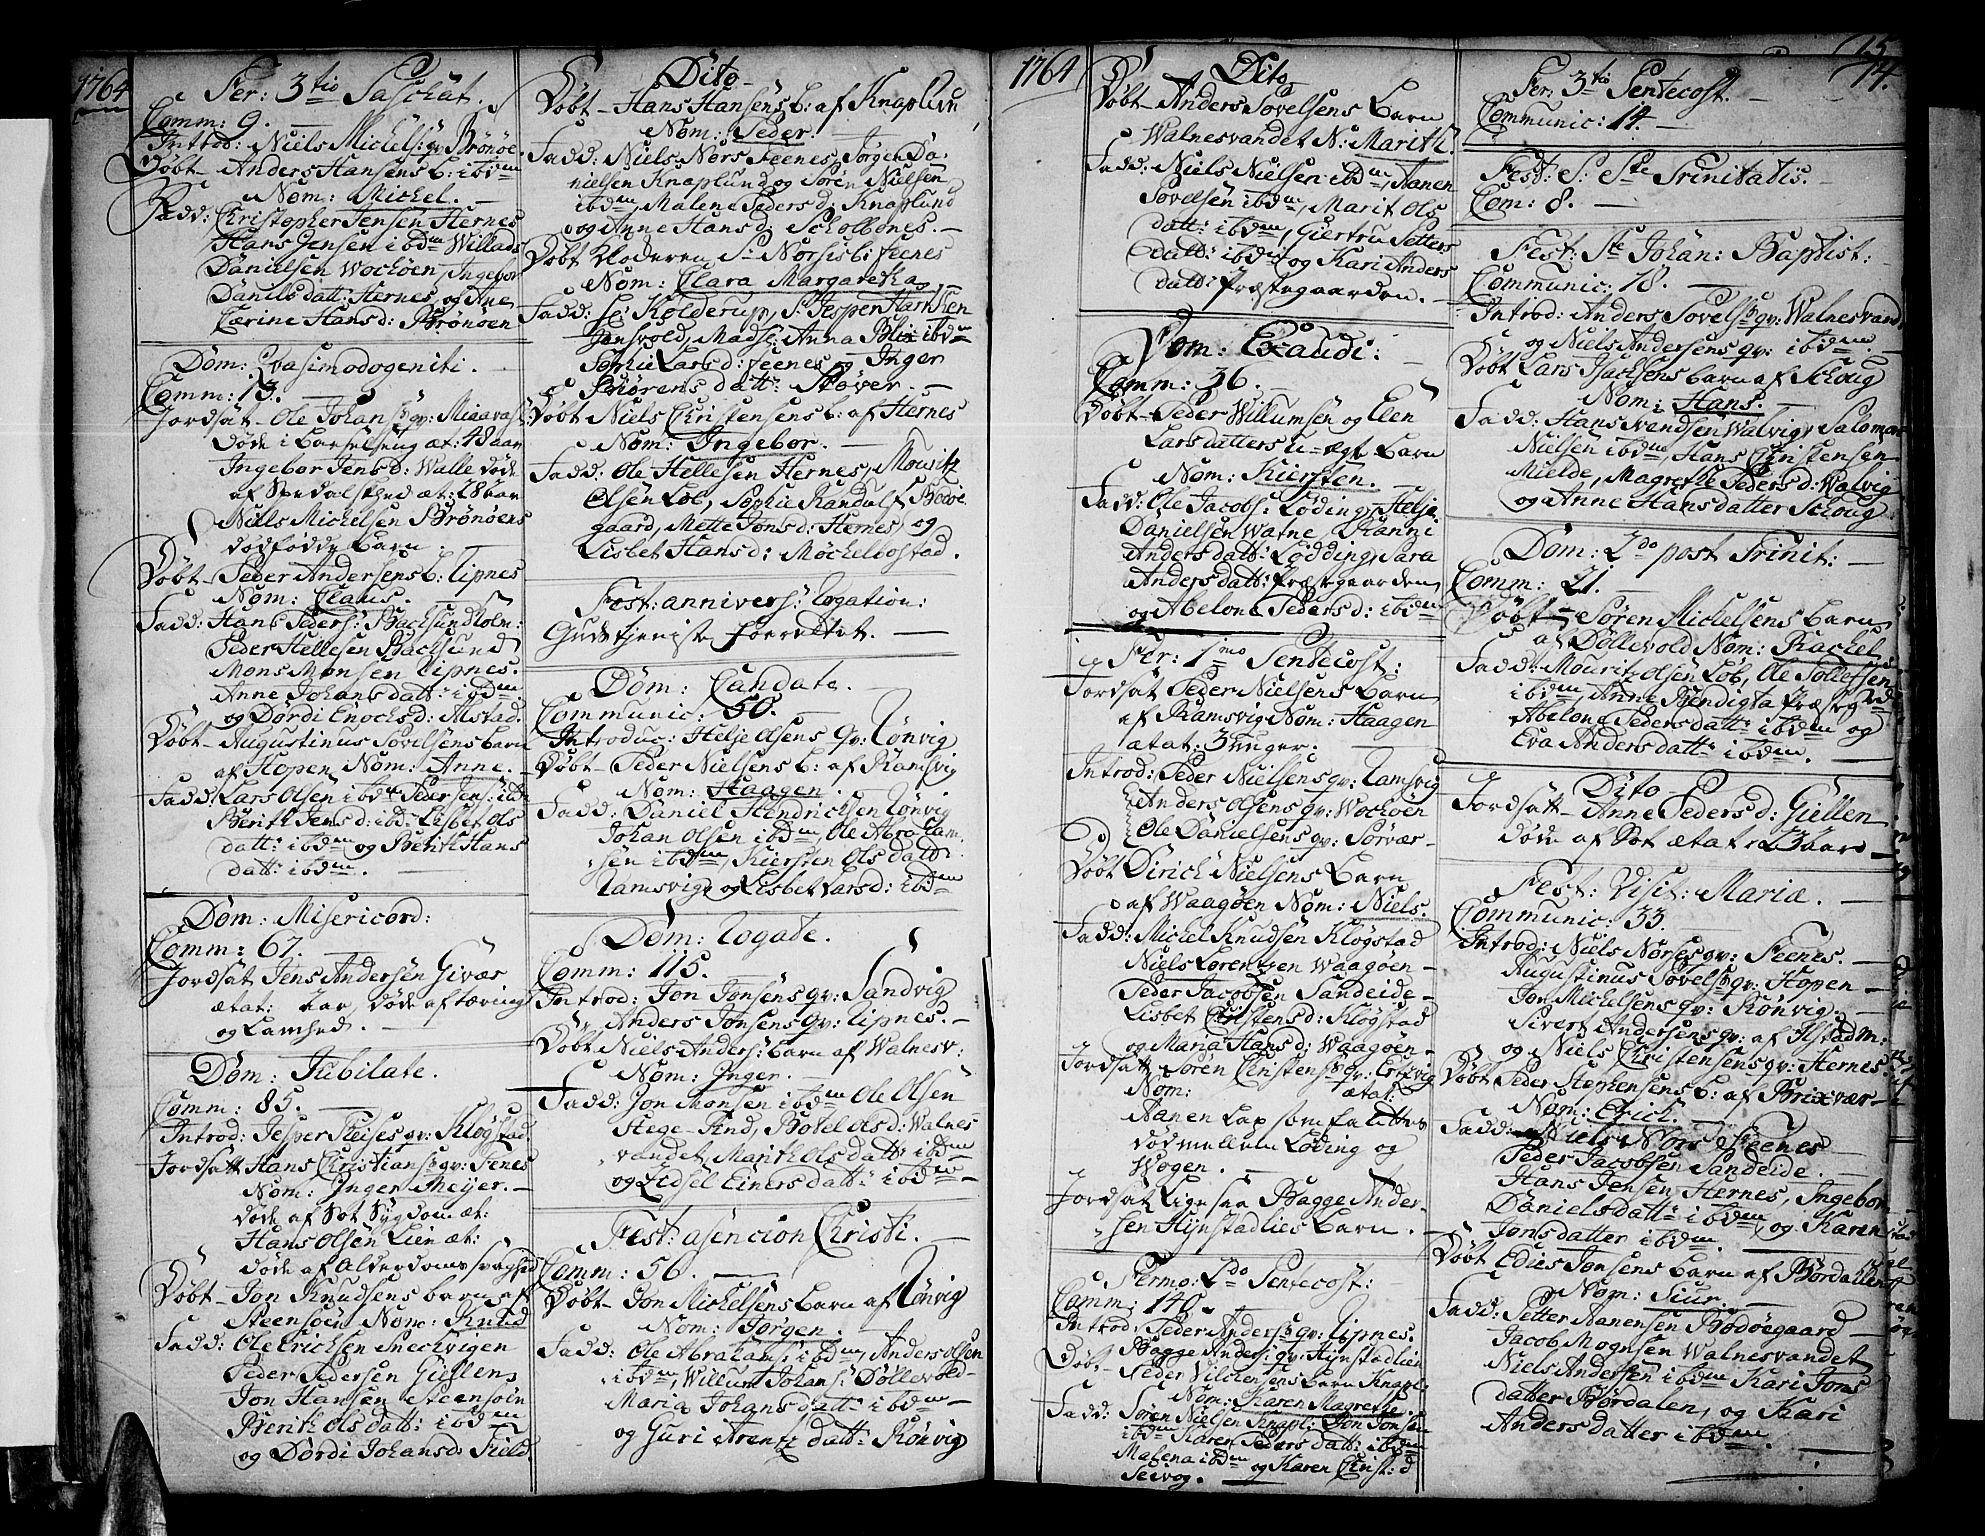 1764
Fer: 3tio Paschat.
Comm: 9.
Introd: Niels Michels: qv: Brönöe.
Döbt Anders Hansens b: ibdm
Nom: Michel.
Fadd: Christopher Jensen Hernes
Hans Jensen ibdm Willads
Danielsen Wochöen, Ingebor
Daniels datt: Hernes, og Ane
Carine Hansd: Brönöen
Dom: Qvasimodogeniti.
Comm: 13.
Jordsat Ole Johans qv:
döde i Barselseng æt: 48 aar
Ingebor Jensd: Walle döde
af Spedalskhed æt: 28 aar
Niels Michelsen Brönöens
dödfödde barn.
Döbt Peder Andersens b: Lipnes
Nom: Claus.
Fadd: Hans Peders: Backsundholm:
Peder Hellesen Backsund
Mons Monsen Lipnes.
Anne Johans datt: ibdm
og Dördi Enochsd: Alstad.
Döbt Augustinus Povelsens barn
af Hopen Nom: Anne.
Fadd: Lars Olsen ibdm Peder
Berith Jensd: ibd: Lisbet Ols
datt: ibdm og Berith Hans
datt: ibdm.
Dom: Misericord:
Comm: 67.
Jordsat Jens Andersen Givær
ætat: aar, döde af tæring
og Lamhed.
Dom: Jubilate.
Comm: 85.
Introd: Jesper qv: Klögstad.
Jordsatt Hans Christians qv: Fenes
Nom: Inger Meijer.
döde af Sot Sygdom æt:
Hans Olsen Lien æt:
döde af Alderdoms svaghed
Döbt Jon Knudsens barn af
Steensöen Nom: Knud
Fadd: Ole Erichsen Sneckvigen
Peder Pedersen Gillen,
Jon Hansen Steensöen
Berith Ols datt: ibdm
og Dördi Johansd:
Dito
Döbt Hans Hansens b: af Knaplun
Nom: Peder
Fadd: Niels Nors Feenes, Jörgen Da-
nielsen Knaplund og Sören Nielsen
ibdm, Malene Pedersd: Knaplund
og Anne Hansd: Scholbones.
Döbt Sr Norsis b: Feenes
Nom: Clara Margaretha
Fadd: Kolderup, Sr Jespen
Anna Blix ibdm
Sophie Larsd: Feenes og Inger
Sörens datt: Stöver.
Döbt Niels Christensens b: af Hernes
Nom: Ingebor.
Fadd: Ole Hellesen Hernes, Mouritz
Olsen Löb, Sophie Randulf Bodöe
gaard, Mette Jonsd: Hernes, og
Lisbet Hansd: Möckelbostad.
Fest: annivers: Rogation:
Gudstjeniste forrettet.
Dom: Cantate.
Communic: 50.
Introduc: Helje Olsens qv: Rönvig
Döbt Peder Nielsens b: af Ramsvig
Nom: Haagen
Fadd: Daniel Hendrichsen Rönvig
Johan Olsen ibdm, Ole Abraham
sen ibdm, Kiersten Ols datt:
Ramsvig og Lisbet Larsd: ibdm
Dom: Rogate.
Comm: 115.
Introd: Jon Jonsens qv: Sandvig
Anders Jonsens qv: Lipnes.
Döbt Niels Anders: barn af Walnesv:
Nom: Inger.
Fadd: Jon Monsen ibdm Ole Olsen
Hege-And, Botel Olsd: Walnes
vandet Marith Ols datt: ibdm
og Zidsel Einersdatt: ibdm
Fest: asencion Christi.
Comm: 56.
Döbt Jon Michelsens barn af Rönvig
Nom: Jörgen.
Fadd: Ole Abrahams: ibdm, Anders Olsen
ibdm, Willum Johans:
Maria Johans datt: ibdm
og Guri Arentz datt: Rönvig
1764
Dito
Döbt Anders Povelsens Barn
Walnesvandet N: Marith.
Fadd: Niels Nielsen ibdm, Aanen
Povelsen ibdm, Marit Ols
datt: ibdm, Giertru Petters
datt: ibdm og Kari Anders
datt: Præstegaarden.
Dom: Exaudi:
Comm: 36.
Döbt Peder Willumsen og Elen
Larsdatters u-ægt Barn
Nom: Kiersten.
Fadd: Ole Jacobs: Löding, Helje
Danielsen Watne,
Anders datt: Lödding, Sara
Anders datt: Præstgaarden,
og Abelone Pedersd: ibdm
Fer: 1mo Pentecost:
Jordsat Peder Nielsens Barn
af Ramsvig Nom: Haagen
ætat: 3 uger.
Introd: Peder Nielsens qv: Ramsvig
Anders Olsens qv: Wochöen
Ole Danielsens qv: Sörvær
Döbt Dirich Nielsens Barn
af Waagöen Nom: Niels.
Fadd: Michel Knudsen Klögstad
Niels Lorentzen Waagöen
Peder Jacobsen Sandeide
Lisbet Christensd: Klögstad
og Maria Hansd: Waagöen
Jordsatt Sören Christens qv:
Nom: ætat:
Aanen Lap som fantes
död mellem Löding og
Wogen.
Jordsat Ligesaa Bagge Ander
sen Hynstadlies Barn.
Fermo: 2do Pentecost:
Comm: 140.
Introd: Peder Anders qv: Lipnes.
Bagge Anders: qv: Hynstadlien
Döbt Peder Barn Knapl:
Nom: Karen Magrethe.
Fadd: Sören Nielsen Knapl: Jon Jonsen
ibdm Karen Pedersdatt: ibdm
Malena ibdm og Karen Christ: d
Seivog.
15
14.
Fer: 3tio Pentecost.
Communic: 14.
Fest: S: Ste Trinitatis.
Com: 8.
Fest: Ste Johan: Baptist:
Communic: 18.
Introd: Anders Povels qv: Walnesvand
og Niels Andersens qv: ibdm
Döbt Lars Isachsens barn af Schoug
Nom: Hans.
Fadd: Hans Walvig, Salomon
Nielsen ibdm, Hans Christensen
Mielde, Magrethe Pedersd: Walvig
og Anne Hansdatter Schoug
Dom: 2do post Trinit:
Comm: 21.
Döbt Sören Michelsens barn
af Döllevold Nom: Rachel
Fadd: Mouritz Olsen Löb, Ole Tollefsen
ibdm, Anne Bendigta
Abelone Pedersdatt: ibdm og
Eva Andersdatt: ibdm.
Dito
Jordsatt Anne Pedersd: Gillen
döde af Sot ætat: 23 aar
Fest: Visit: Mariæ.
Communic: 33.
Introd: Niels Norses qv: Feenes.
Augustinus Povels qv: Hopen
Jon Michelsens qv: Rönvig.
Sivert Andersens qv: af Alstadm:
og Niels Christensens qv: Hernes.
Döbt Peder Stephensens b: af Brixvær
Nom: Erich.
Fadd: Niels Nors Feenes
Peder Jacobsen Sandeide.
Hans Jensen Hernes, Ingebor
Danielsdatt: ibdm, og Karen
Jonsdatter ibdm.
Döbt Edies Jonsens barn af Bördallen
Nom: Siur.
Fadd: Petter Aanensen Bodöegaard
Jacob Mognsen Walnesvandet
Niels Andersen ibdm Kari Jons
datter Bördalen, og Kari
Anders datter ibdm.